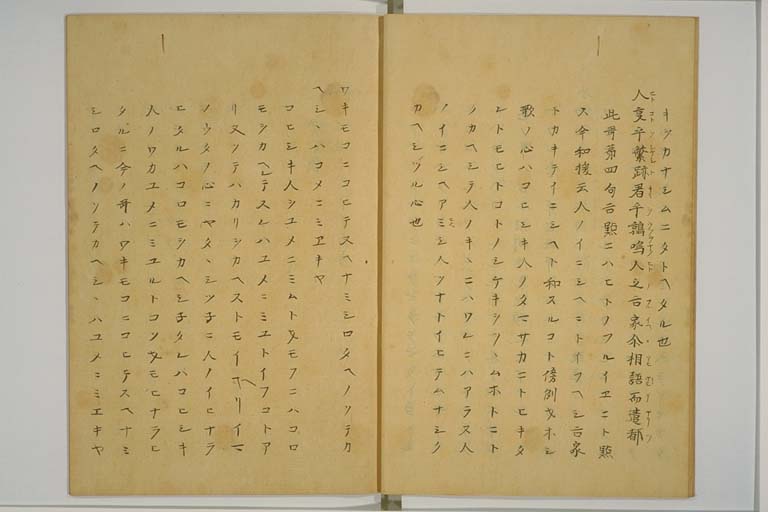 キヲカナシムニタトヘタル也
人事乎繁跡君乎鶉鳴人之古家尒相語而遣都
此哥第四句古點ニハヒトノフルイエニト點
ス今和換云人ノイニシヘニトイフヘシ古家
トカキテイニシヘト和スルコト傍例オホシ
歌ノ心ハコヒシキ人ノタマサカニトヒキタ
レトモヒトコトノシケキヲ ムホトニト
カヘシテ人ノキヽニハワレニハアラス人
ノイニシヘアミシ人ソナトイヒテムナシク
カヘシツル心也
ワキモコニコヒテスヘナミシロタヘノソテカ
ヘシヽハユメニミエキヤ
コヒシキ人ヲユメニミムトオモフニハコロ
モヲカヘシテヌレハユメニミユトイフコトア
リ又ソテハカリヲカヘストモイヘリイマ
ノウタノ心ニヤタヽミツ子ニ人ノイヒナラ
ヒタルハコロモヲカヘシ子タレハコヒシキ
人ノワカユメニミユルトコソオモヒナラヒ
タルニ今ノ哥ハワキモコニコヒテスヘナミ
シロタヘノソテカヘシヽハユメニミエキヤ